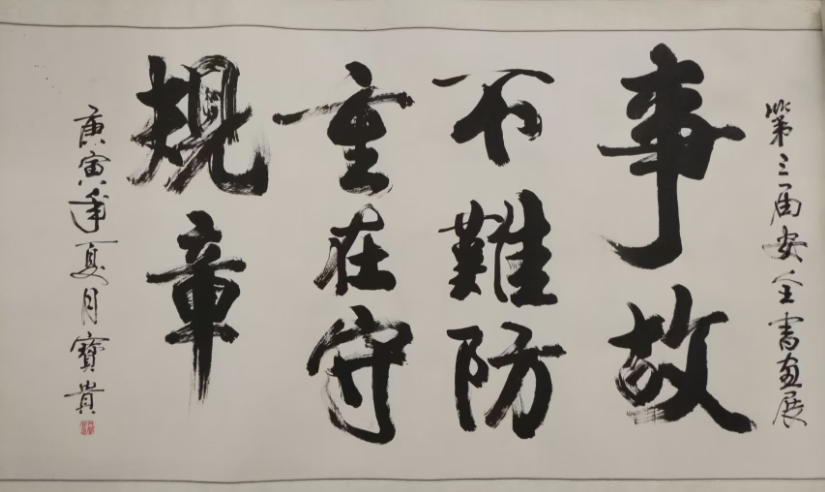 第三届安全書画展
事故
不難防
重在守
規章
庚寅年夏月寶貴